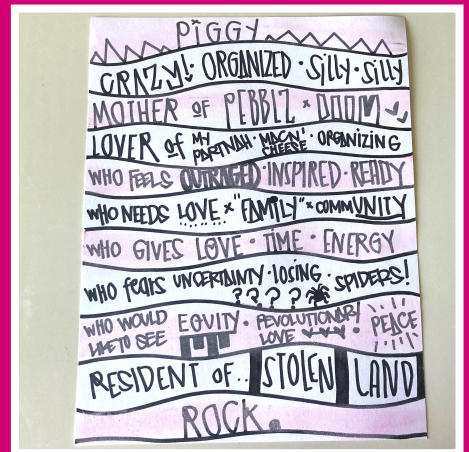 PiGGY
CRAZY! · ORGANIZED · Silly · Silly
MOTHER OF PEBBLZ × DOOM
LOVER of MY PARTNAH · MACN' CHEESE · ORGANIZING
WHO FEELS OUTRAGED · INSPIRED · READY
WHO NEEDS LOVE × "FAMiLY" × COMMUNITY
WHO GIVES LOVE · TIME · ENERGY
WHO fears UNCERTAINTY · losing · SPIDERS!
? ? ? ?
WHO WOULD LIKE TO SEE EQUITY · REVOLUTIONARY LOVE · PEACE
RESIDENT OF... STOLEN LAND
ROCK.